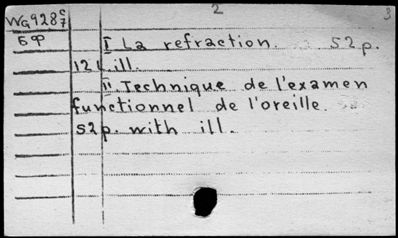 2 3
WG928 c/7
БФ
I La refraction. 52 p.
121 ill.
II. Technique de l'examen
functionnel de l'oreille.
52 p. with ill.